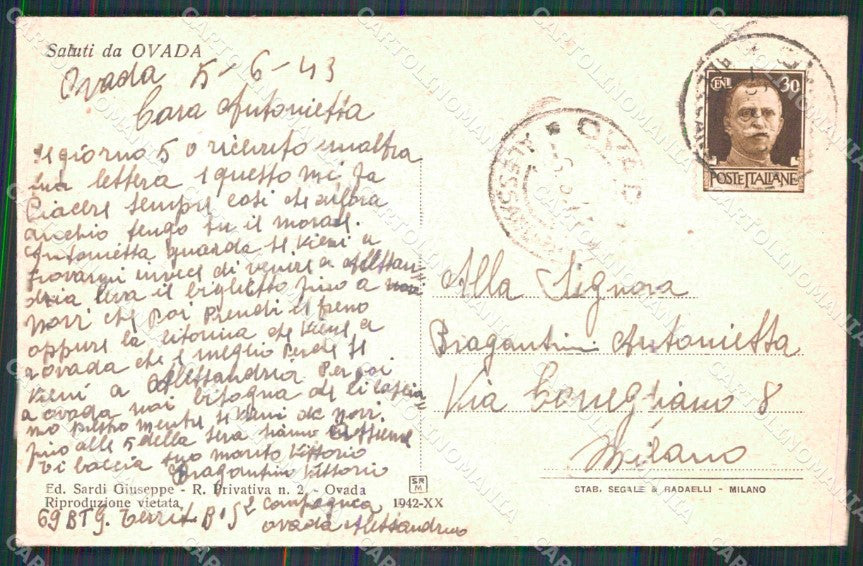 Saluti da OVADA
Ovada 5-6-43
Cara Antonietta
Il giorno 5 o ricevuto unaltra
tua lettera e questo mi fa
Piacere sempre cosi che allora
anchio tengo su il morale.
Antonietta guarda se vieni a
trovarmi invece di venire a Alessan
dria leva il biglietto fino a novi
Novi che poi Prendi il treno
oppure la litorina che viene a
ovada che e meglio Perche se
vieni a Alessandria Per poi
a ovada noi bisogna che ci lascia=
mo presto mentre se vieni da Novi.
fino alle 5 della sera siamo assieme
Vi baccia tuo marito Vittorio
Bragantini Vittorio
Ed. Sardi Giuseppe - R. Privativa n. 2 - Ovada
Riproduzione vietata
1942-XX
69 BTG. Territ. B. 5ª Compagnia
ovada Alessandria
SR
M
OVADA
ALESSANDRIA
CENT. 30
POSTE ITALIANE
Alla Signora
Bragantini Antonietta
Via Conegliano 8
Milano
STAB. SEGALE & RADAELLI - MILANO
CARTOLINOMANIA